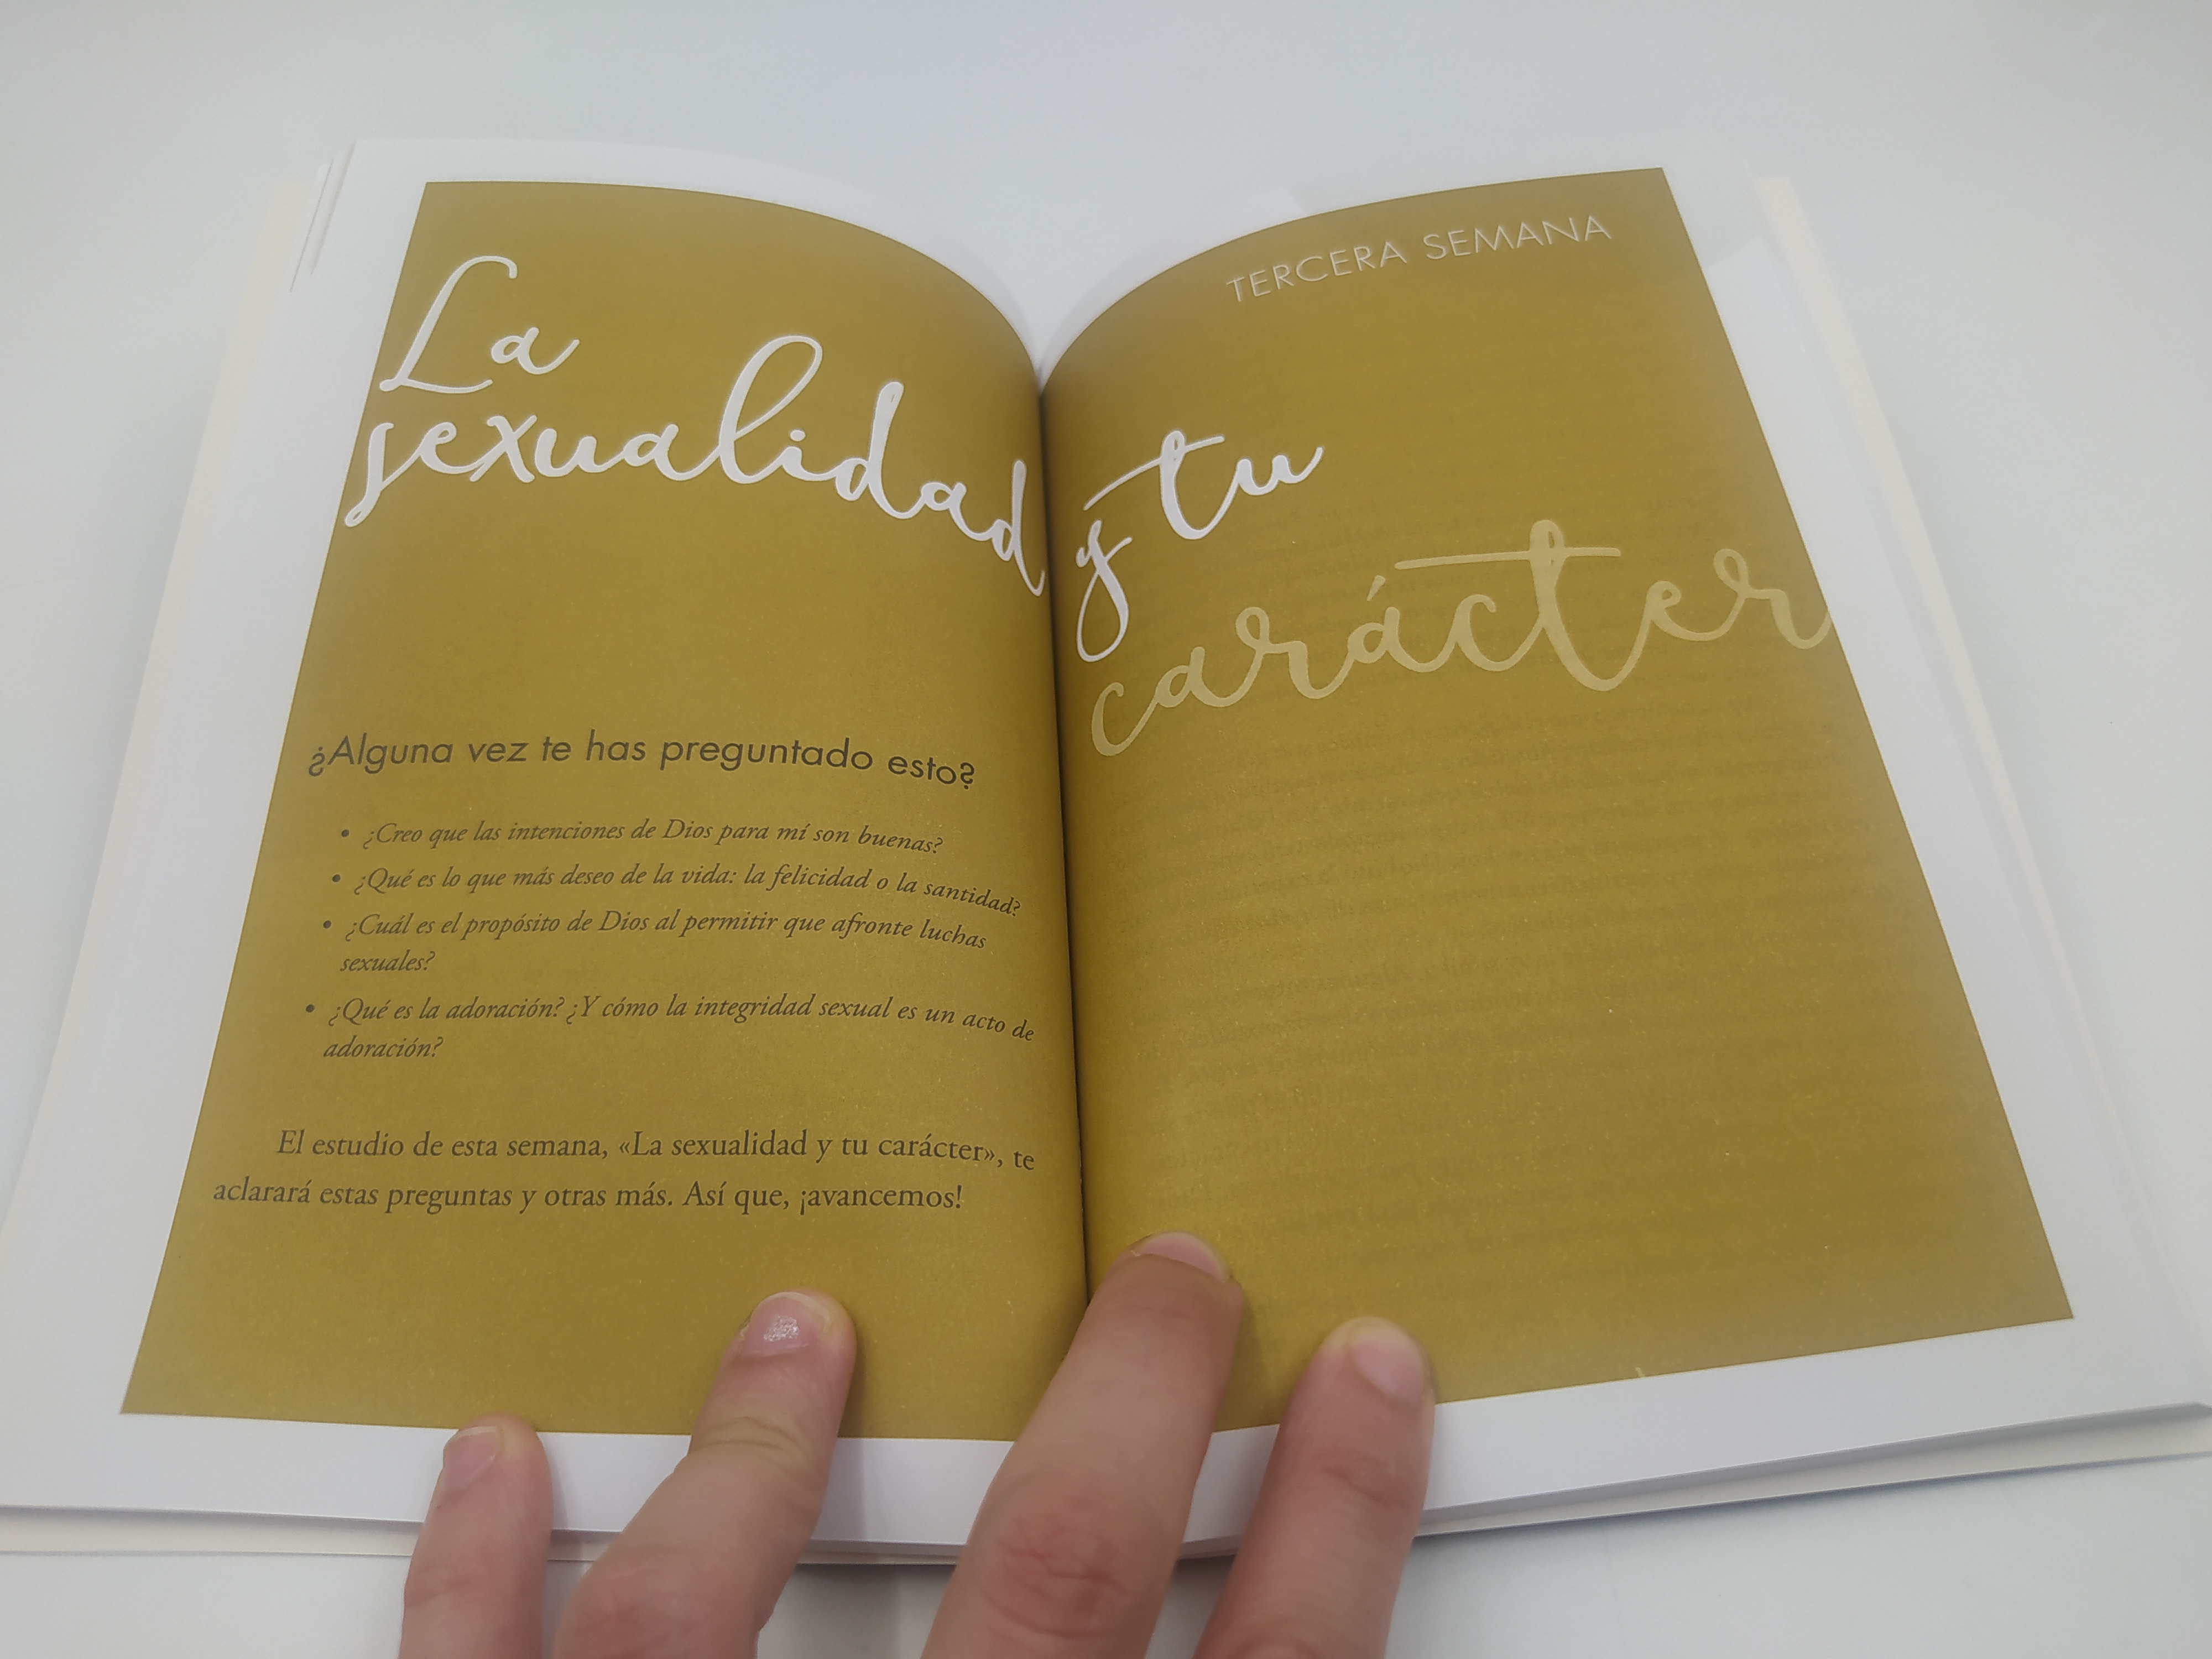 La
sexualidad
¿Alguna vez te has preguntado esto?
• ¿Creo que las intenciones de Dios para mí son buenas?
• ¿Qué es lo que más deseo de la vida: la felicidad o la santidad?
• ¿Cuál es el propósito de Dios al permitir que afronte luchas
sexuales?
• ¿Qué es la adoración? ¿Y cómo la integridad sexual es un acto de
adoración?
El estudio de esta semana, «La sexualidad y tu carácter», te
aclarará estas preguntas y otras más. Así que, ¡avancemos!
TERCERA SEMANA
y tu
carácter